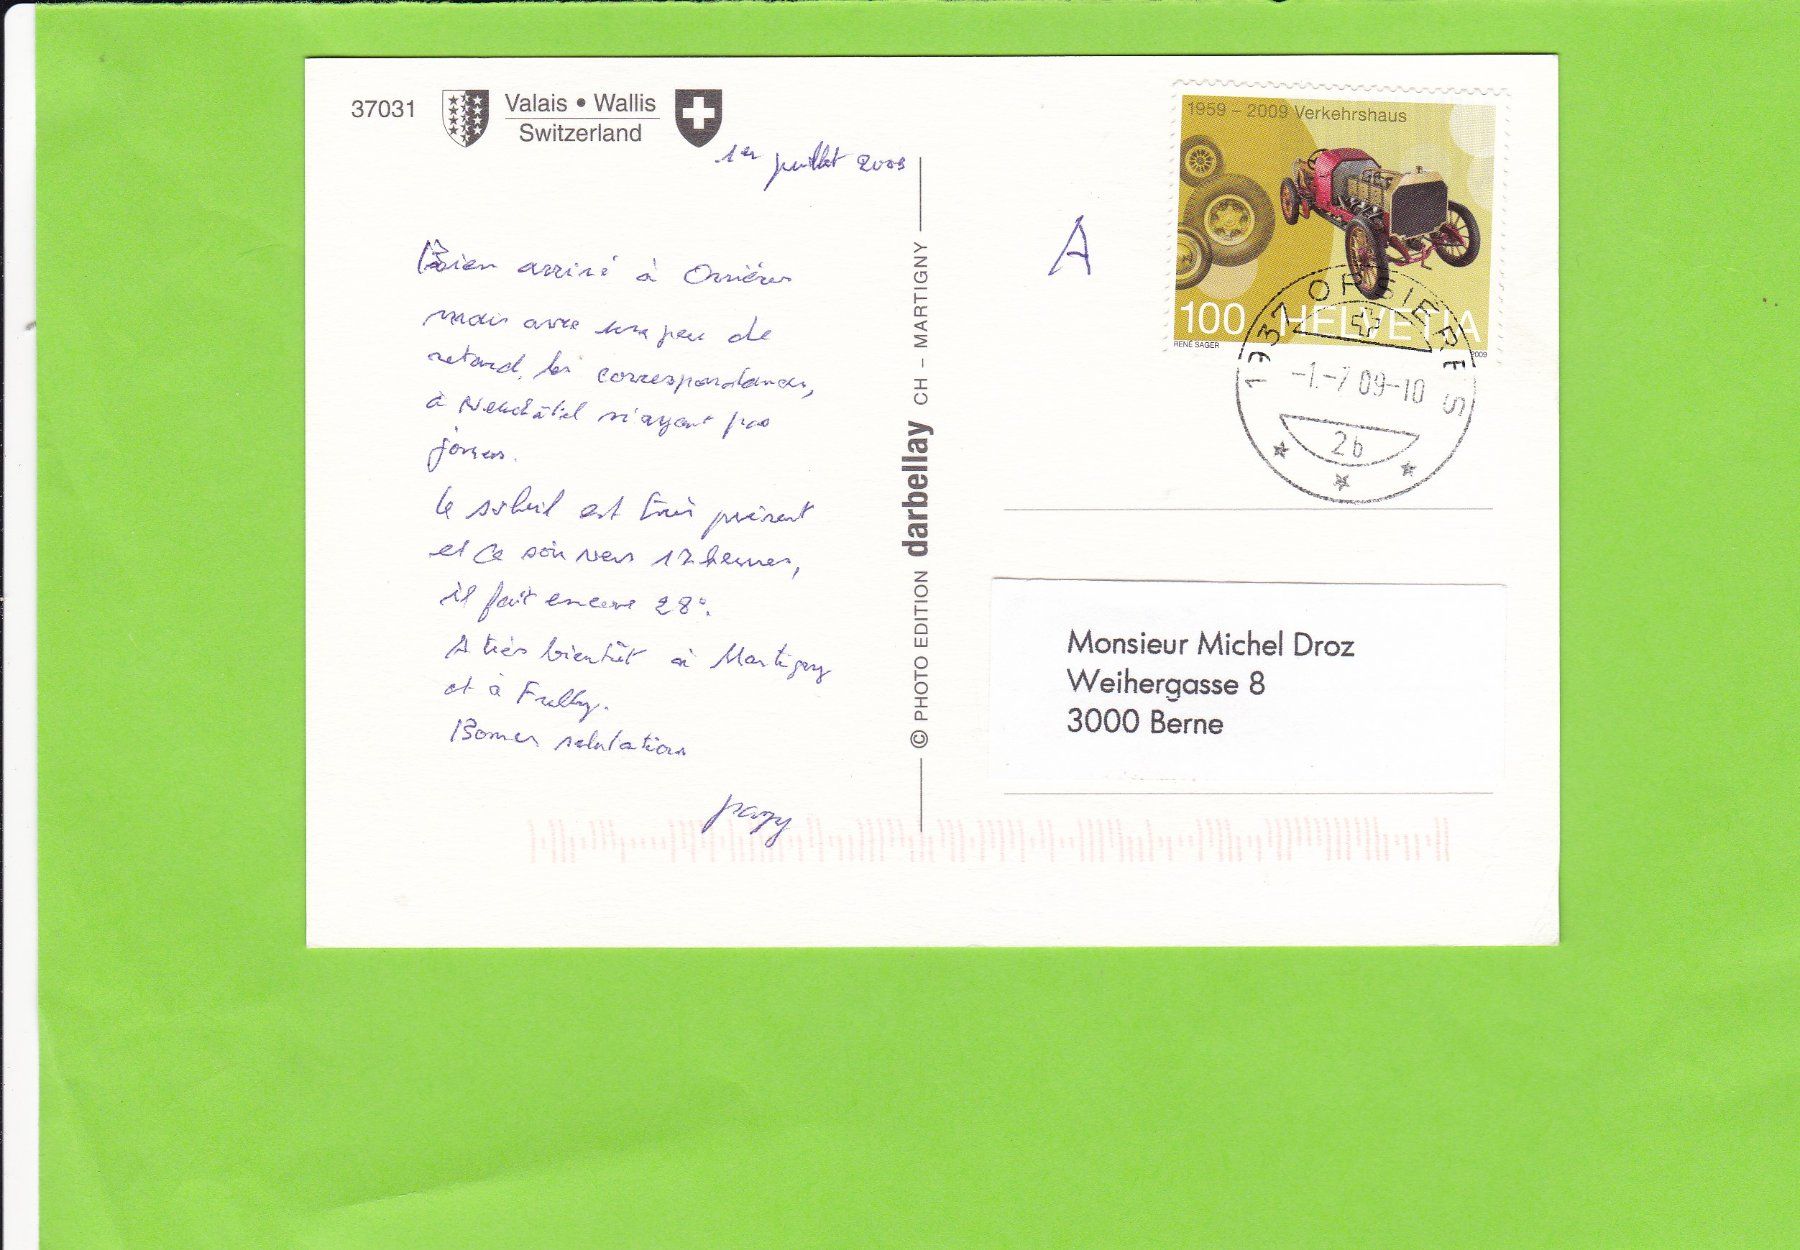 37031
Valais • Wallis
Switzerland
1er juillet 2009
Bien arrivé à Orsières
mais avec un peu de
retard, les correspondances,
à Neuchâtel n'ayant pas
jouées.
Le soleil est très présent
et ce soir vers 17 heures,
il fait encore 28°.
A très bientôt à Martigny
et à Fully.
Bonnes salutations
© PHOTO EDITION darbellay CH – MARTIGNY
A
1959 – 2009 Verkehrshaus
100 HELVETIA
RENÉ SAGER 2009
1937 ORSIÈRES
-1.-7 09-10
2b
Monsieur Michel Droz
Weihergasse 8
3000 Berne